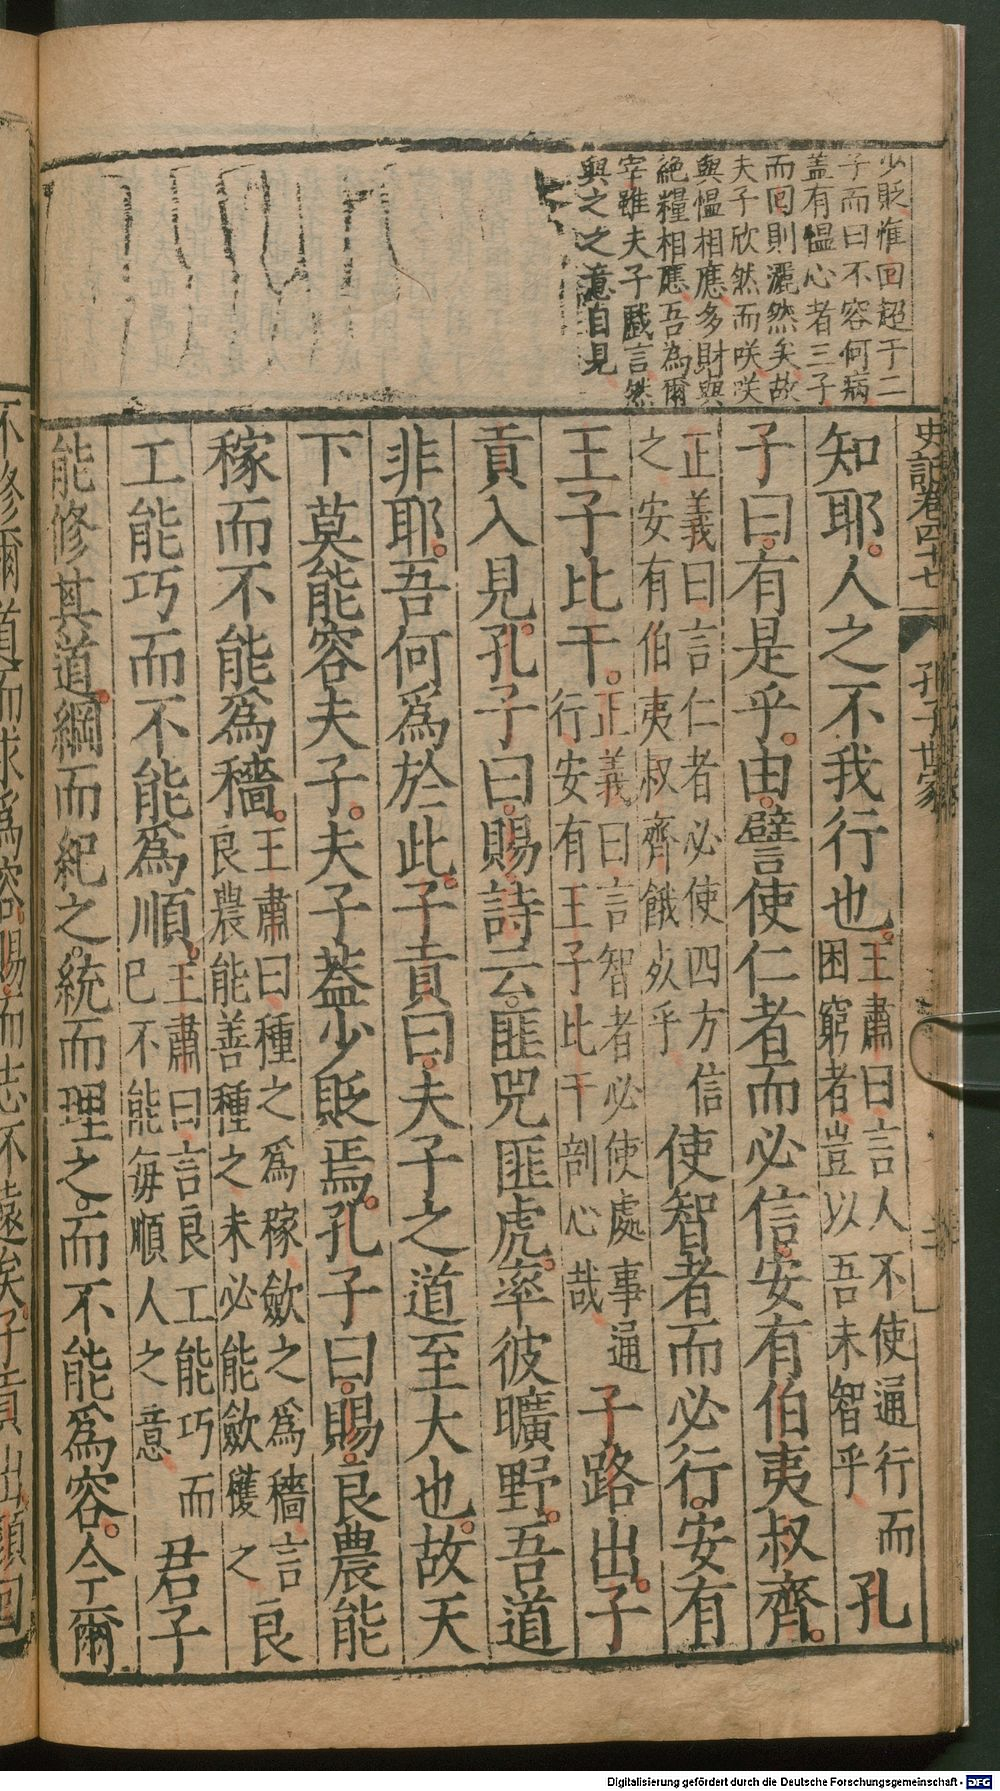 少貶惟回超于二
子而曰不容何病
蓋有慍心者三子
而回則灑然矣故
夫子欣然而咲咲
與慍相應多財與
絕糧相應吾為爾
宰雖夫子戲言然
與之之意自見
史記卷四十七 孔子世家
知耶人之不我行也王肅曰言人不使通行而
困窮者豈以吾未智乎孔
子曰有是乎由譬使仁者而必信安有伯夷叔齊
正義曰言仁者必使四方信
之安有伯夷叔齊餓死乎使智者而必行安有
王子比干正義曰言智者必使處事通
行安有王子比干剖心哉子路出子
貢入見孔子曰賜詩云匪兕匪虎率彼曠野吾道
非耶吾何爲於此子貢曰夫子之道至大也故天
下莫能容夫子夫子蓋少貶焉孔子曰賜良農能
稼而不能爲穡王肅曰種之爲稼歛之爲穡言良
良農能善種之未必能歛穫之
工能巧而不能爲順王肅曰言良工能巧而
已不能每順人之意君子
能修其道綱而紀之統而理之而不能爲容今爾
不修爾道而求爲容賜而志不遠矣子貢出顏回
Digitalisierung gefördert durch die Deutsche Forschungsgemeinschaft - DFG